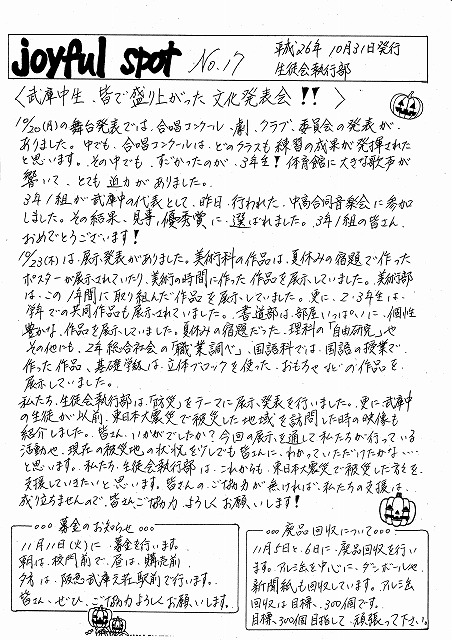 joyful spot No.17
平成26年 10月31日発行
生徒会執行部
〈武庫中生、皆で盛り上がった 文化発表会!!〉
10/20(月)の舞台発表では、合唱コンクール・劇、クラブ・委員会の発表が
ありました。中でも、合唱コンクールは、どのクラスも練習の成果が発揮された
と思います。その中でも、すごかったのが、3年生!体育館に大きな歌声が
響いて、とても迫力がありました。
3年1組が武庫中の代表として、昨日、行われた、中高合同音楽会に参加
しました。その結果、見事、優秀賞に、選ばれました。3年1組の皆さん、
おめでとうございます!
10/23(木)は、展示発表がありました。美術科の作品は、夏休みの宿題で作った
ポスターが展示されていたり、美術の時間に作った作品を展示していました。美術部
は、この1年間に取り組んだ作品を展示していました。更に、2・3年生は、
学年での共同作品も展示されていました。書道部は、部屋いっぱいに、個性
豊かな、作品を展示していました。夏休みの宿題だった、理科の「自由研究」や
その他にも、2年総合社会の「職業調べ」、国語科では、国語の授業で
作った作品、基礎学級は、立体ブロックを使った、おもちゃなどの作品を
展示していました。
私たち、生徒会執行部は、「防災」をテーマに展示発表を行いました。更に武庫中
の生徒が以前、東日本大震災で被災した地域を訪問した時の映像も
紹介しました。皆さん、いかがでしたか?今回の展示を通して私たちが行っている
活動や、現在の被災地の状況を少しでも皆さんに、わかっていただけたかな…
と思います。私たち、生徒会執行部は、これからも、東日本大震災で被災した方々を、
支援していきたいと思います。皆さんのご協力が無ければ、私たちの支援は、
成り立ちませんので、皆さんご協力よろしくお願いします!
○○○募金のお知らせ○○○
11月11日(火)に、募金を行います。
朝は、校門前で、昼は、購売前、
夕方は、阪急武庫之荘駅前で行います。
皆さん、ぜひ、ご協力よろしくお願いします。
○○○廃品回収について○○○
11月5日と6日に、廃品回収を行い
ます。アルミ缶を中心に、ダンボールや、
新聞紙も回収しています。アルミ缶
回収は目標、300個です。
目標、300個目指して、頑張って下さい。